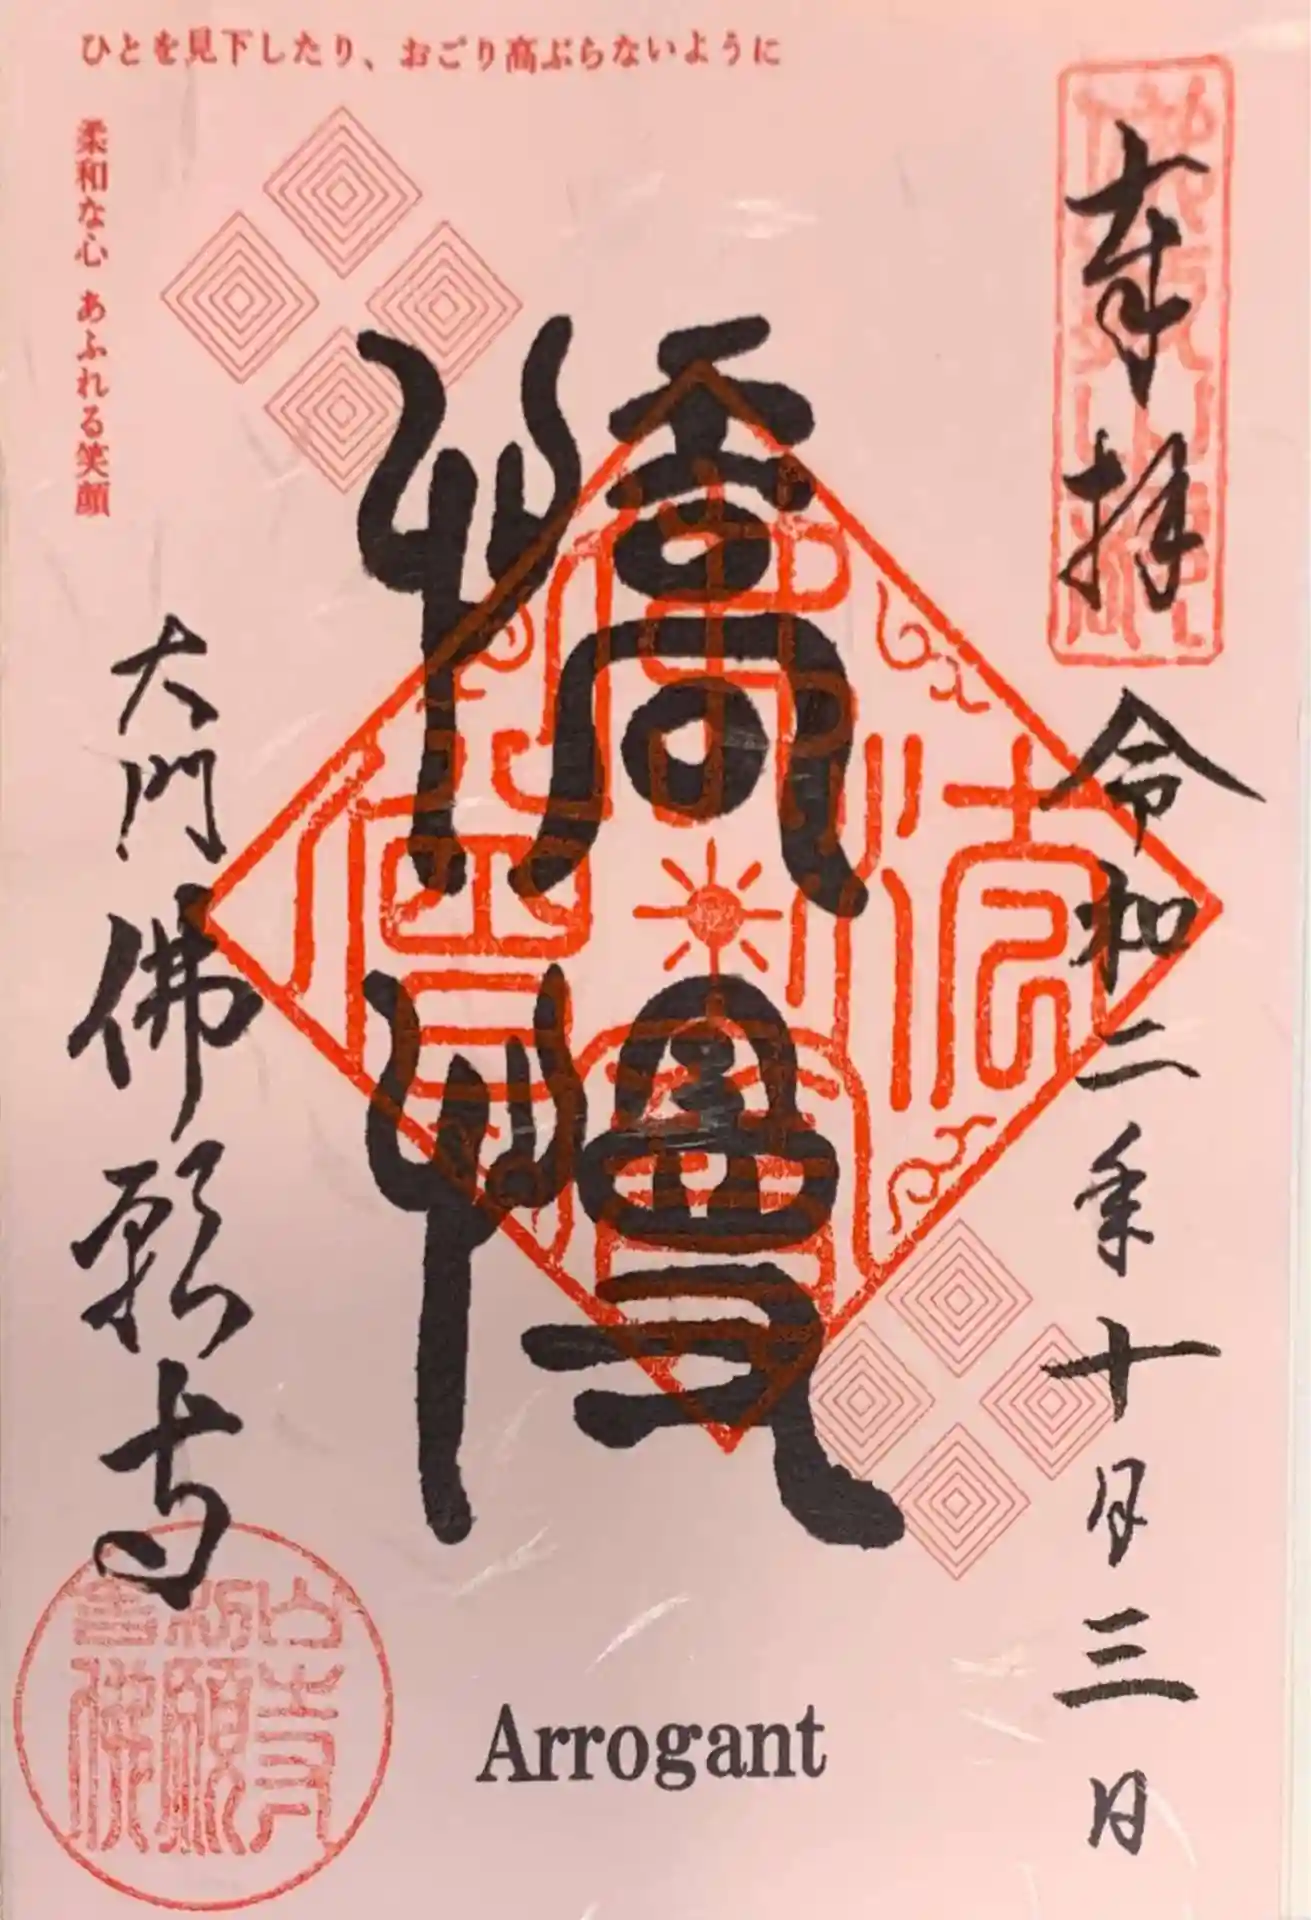 ひとを見下したり、おごり高ぶらないように
柔和な心 あふれる笑顔
奉拝
令和二年十月三日
憍慢
大門佛願寺
佛法僧寶
Arrogant